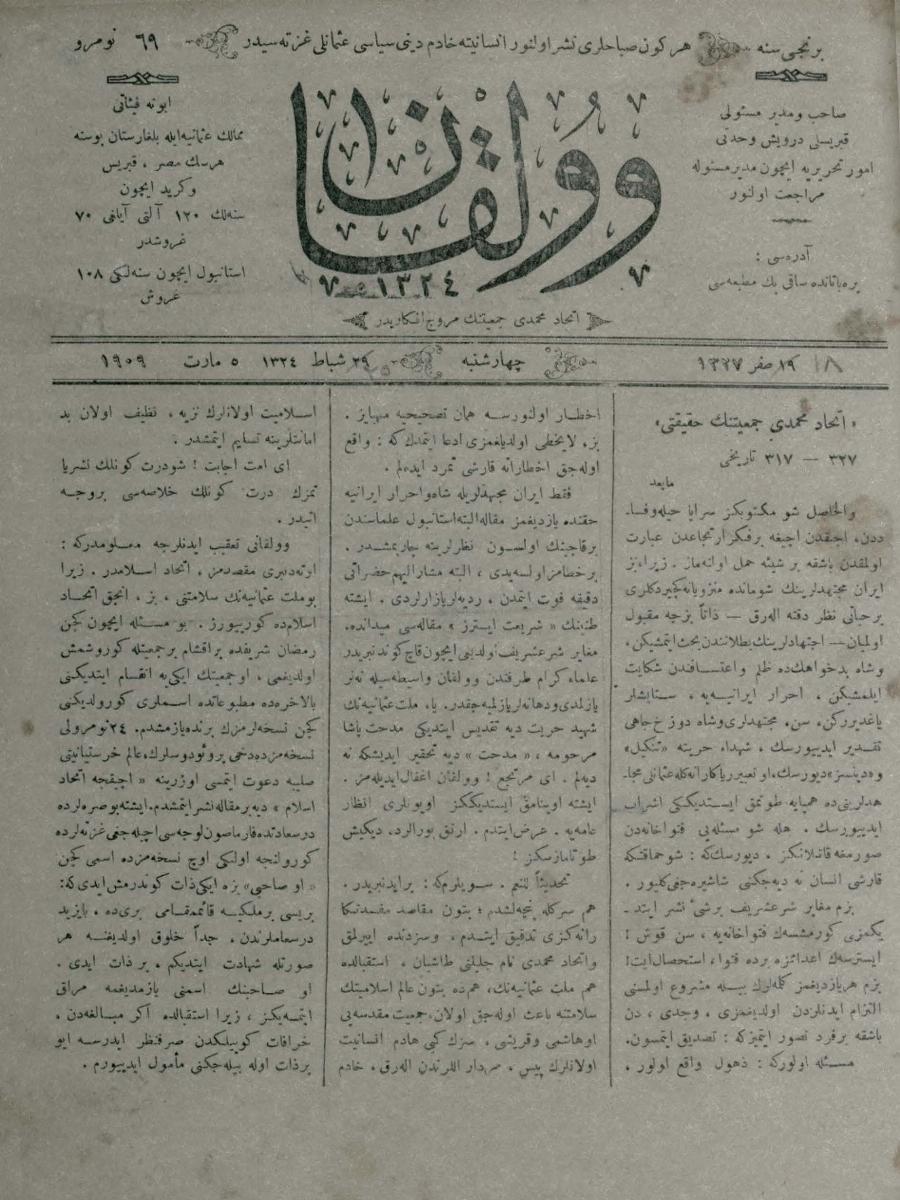 برنجی سنه
هر کون صباحلری نشر اولنور انسانیته خادم دینی سیاسی عثمانلی غزته سیدر
۶۹ نومرو
صاحب ومدیر مسئولی
قبریسلی درویش وحدتی
امور تحریریه ایچون مدیر مسئوله
مراجعت اولنور
آدره سی :
ساقی بك مطبعه سی
وولقان
۱۳۲۴
ابونه فیئاتی
ممالك عثمانیه ایله بلغارستان بوسنه
هرسك مصر ، قبریس
وکرید ایچون
سنه لك ۱۲۰ آلتی آیلغی ۷۰
غروشدر
استانبول ایچون سنه لکی ۱۰۸
غروش
اتحاد محمدی جمعیتنك مروج افکاریدر
۱۸ صفر ۱۳۲۷
چهارشنبه
شباط ۱۳۲۴
۵ مارت ۱۹۰۹
« اتحاد محمدی جمعیتنك حقیقتی»
۳۲۷ — ۳۱۷ تاریخی
مابعد
والحاصل شو مکتوبکز سراپا حیله وفسا-
ددن، آچیقدن آچیغه بر فکر ارتجاعدن عبارت
اولمقدن باشقه بر شیئه حمل اولنه ماز . زیرا، بز
ایران مجتهدلرینك شو مانده منزویانه کچیردکلری
بر حیاتی نظر دقته الەرق — ذاتاً بزجه مقبول
اولمیان — اجتهادلرینك بطلانندن بحث ایتمشیکن،
وشاه بدخواهك ده ظلم واعتسافندن شکایت
ایلمشیکن ، احرار ایرانیه یه ، ستایشلر
یاغدیررکن، سن، مجتهدلری وشاه دوزخ جاهی
تقدیر ایدییورسك ، شهداء حریته «تنکیل»
و «دینسز» دیورسك، او تعبیر ریاکارانه کله عثمانلی مجا-
هدلرینی ده همپایه طوتمق ایستدیککی اشراب
ایدییورسك . هله شو مسئله یی فتواخانه دن
صورمغه قالدیکز . دیورسك که : شو حماقتکه
قارشی انسان نه دیه جکنی شاشیره جغی کلیور .
بزم مغایر شرعشریف بر شی نشر ایتد-
یکمزی کورمشسه ك فتواخانه یه ، سن قوش !
ایسترسه ك اعدائکزه برده فتوا، استحصال ایت!
بزم هر یازدیغمز کله لرك بیله مشروع اولمسنی
التزام ایدنلردن اولدیغمزی . وجدی ، دن
باشقه بر فرد تصور ایتمیز که : تصدیق ایتمسون.
مسئله اولور که : ذهول واقع اولور .
اخطار اولنورسه همان تصحیحیه مهیایز .
بز، لایخطی اولدیغمزی ادعا ایتمدك که : واقع
اوله جق اخطاراته قارشی تمرد ایدەلم .
فقط ایران مجتهدلریله شاه واحرار ایرانیه
حقنده یازدیغمز مقاله البته استانبول علماسندن
برقاچینك اولسون نظرلرینه چارپمشدر .
بر خطامز اولسه یدی ، البته مشارالیهم حضراتی
دقیقه فوت ایتمدن ، ردیه لر یازارلردی . ایشته
طنینك « شریعت ایسترز » مقاله سی میدانده.
مغایر شرعشریف اولدیغی ایچون قاچ کوندنبریدر
علماء کرام طرفندن وولقان واسطه سیله نه لر
یازلمدی ودها نه لر یازلمیه جقدر. یا، ملت عثمانیه نك
شهید حریت دیه تقدیس ایتدیکی مدحت پاشا
مرحومه ، « مدحت » دیه تحقیر ایدیشکه نه
دیه لم . ای مرتجع ! وولقان اغفال ایدیله مز .
ایشته اوینامق ایستدیککز اویونلری انظار
عامه یه . عرض ایتدم . ارتق بورالرد، دیکیش
طوتامازسکز !
تحدیثاً للنعم . سویلرم که : بر آیدنبریدر.
هم سرکله پنجه لشدم ؛ بتون مقاصد مفسدتکا
رانه کزی تدقیق ایتدم . وسزدنده ایریلمق
واتحاد محمدی نام جلیلنی طاشیان ، استقبالده
هم ملت عثمانیه نك، هم ده بتون عالم اسلامیتك
سلامتنه باعث اوله جق اولان، جمعیت مقدسه یی
او هاشمی وقریشی . سزك کبی هادم انسانیت
اولانلرك پیس ، مردار اللرندن الەرق . خادم
اسلامیت اولانلرك نزیه ، نظیف اولان ید
امانتلرینه تسلیم ایتمشدر .
ای امت اجابت ! شو درت کونلك نشریا
تمزك درت کونلك خلاصه سی بروجه
آتیدر .
وولقانی تعقیب ایدنلرجه معلومدر که :
اوته دنبری مقصدمز ، اتحاد اسلامدر . زیرا
بو ملت عثمانیه نك سلامتنی ، بز ، انجق اتحاد
اسلامده کورییورز . بو مسئله ایچون کچن
رمضان شریفده بر اقشام بر جمعیتله کوروشمش
اولدیغمی ، او جمعیتك ایکی یه انقسام ایتدیکنی
بالاخره ده مطبوعاتده اسملری کورولدیکنی
کچن نسخه لرمزك برنده یازمشدم. ۲۴ نومرولی
نسخه مزده دخی بروئودوسلرك، عالم خرستیانیتی
صلیبه دعوت ایتمسی اوزرینه « آچیقجه اتحاد
اسلام » دیه بر مقاله نشر ایتمشدم. ایشته بو صره لرده
درسعادتده فارماصون لوجه سی آچیله جغی غزته لرده
کورولنجه اولکی اوچ نسخه مزده اسمی کچن
« او صاحبی » بزه ایکی ذات کوندرمش ایدی که:
بریسی بر ملکیه قائممقامی بری ده ، بایزید
درسعاملرندن . جداً خلوق اولدیغنه هر
صورتله شهادت ایتدیکم . بر ذات ایدی .
او صاحبنك اسمنی یازمدیغمه مراق
ایتمه یکز ، زیرا استقبالده اکر مبالغه دن ،
خرافات کوپیلکدن صرفنظر ایدرسه ایو
بر ذات اوله بیله جکنی مأمول ایدییورم .